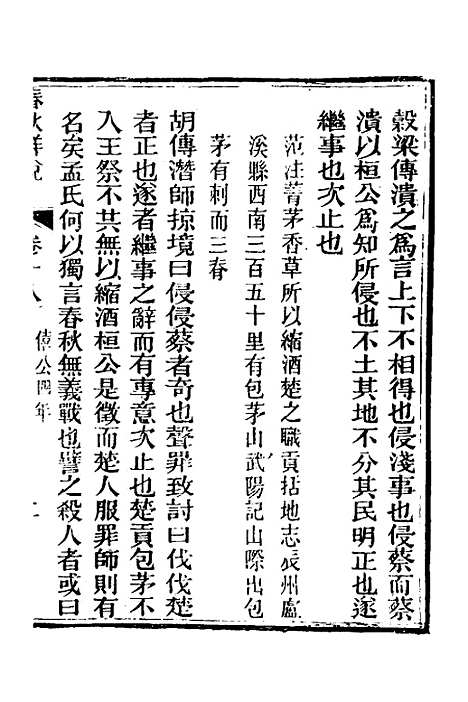 穀梁傳潰之爲言上下不相得也侵淺事也侵蔡而蔡
潰以桓公爲知所侵也不土其地不分其民明正也遂
繼事也次止也
范注菁茅香草所以縮酒楚之職貢括地志辰州盧
溪縣西南三百五十里有包茅山武陽記山際出包
茅有刺而三脊
胡傳潛師掠境曰侵侵蔡者奇也聲罪致討曰伐伐楚
者正也遂者繼事之辭而有專意次止也楚貢包茅不
入王祭不共無以縮酒桓公是徵而楚人服罪師則有
名矣孟氏何以獨言春秋無義戰也譬之殺人者或曰
卷十八 僖公四年